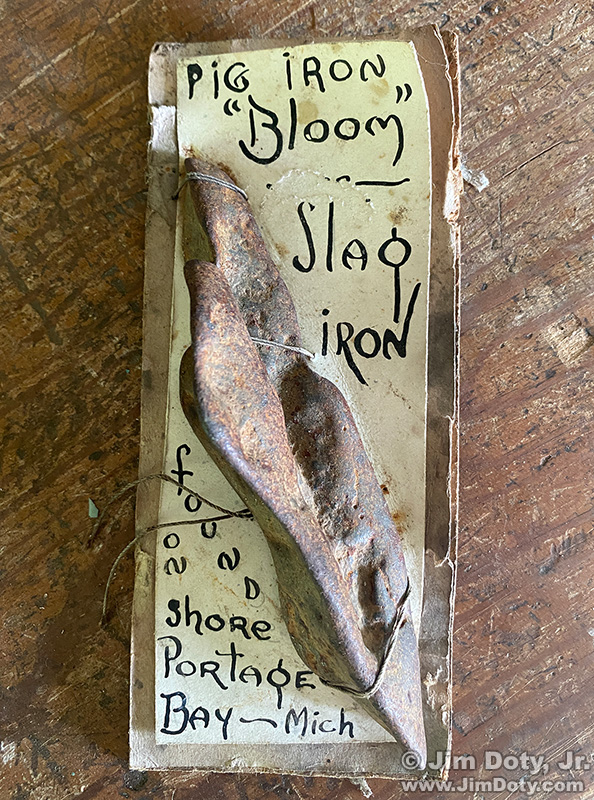 PIG IRON
"Bloom"
Slag
IRON
found
on
Shore
Portage
Bay — Mich
© Jim Doty, Jr.
www.JimDoty.com